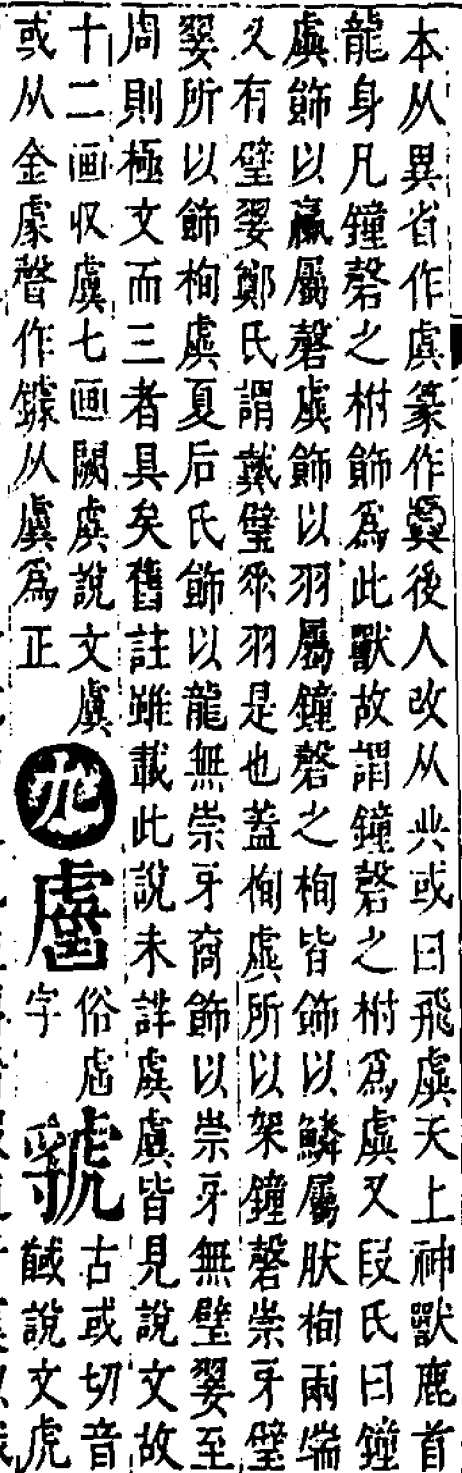 本从異省作虡篆作𧇽後人改从业或曰飛虡天上神獸鹿首
龍身凡鐘磬之柎飾為此獸故謂鐘磬之柎為虡又段氏曰鐘
虡飾以臝屬磬虡飾以羽屬鐘磬之栒皆飾以鱗屬狀栒兩端
又有璧翣鄭氏謂戴璧垂羽是也蓋栒虡所以架鐘磬崇牙璧
翣所以飾栒虡夏后氏飾以龍無崇牙商飾以崇牙無璧翣至
周則極文而三者具矣舊註雖載此說未詳虡虞皆見說文故
十二画收虞七画闕虡說文虞
或从金豦聲作鐻从虞為正
九
俗虗
字
號
古或切音
馘說文虎